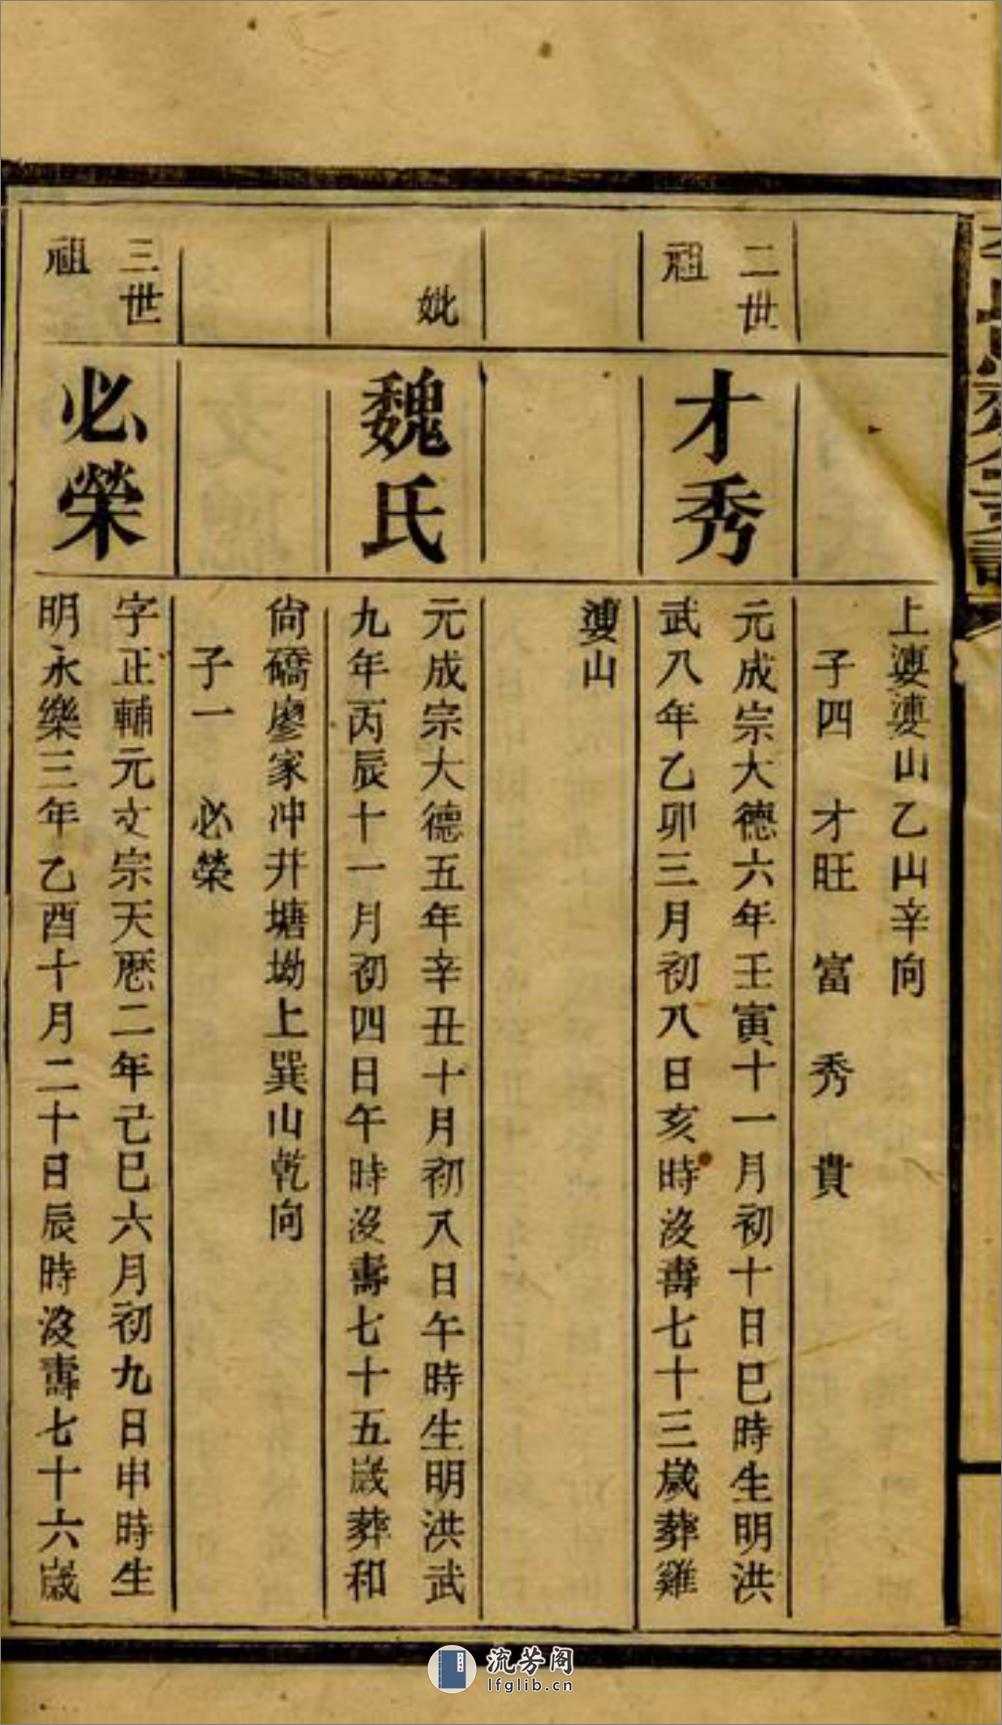 上婆婆山乙山辛向
子四　才旺　富　秀　貴
二世
祖
才秀
元成宗大德六年壬寅十一月初十日巳時生明洪
武八年乙卯三月初八日亥時沒壽七十三歲葬雞
婆山
妣
魏氏
元成宗大德五年辛丑十月初八日午時生明洪武
九年丙辰十一月初四日午時沒壽七十五歲葬和
尙礄廖家冲井塘坳上巽山乾向
子一　必榮
三世
祖
必榮
字正輔元文宗天厯二年己巳六月初九日申時生
明永樂三年乙酉十月二十日辰時沒壽七十六歲
流芳阁
lfglib.cn